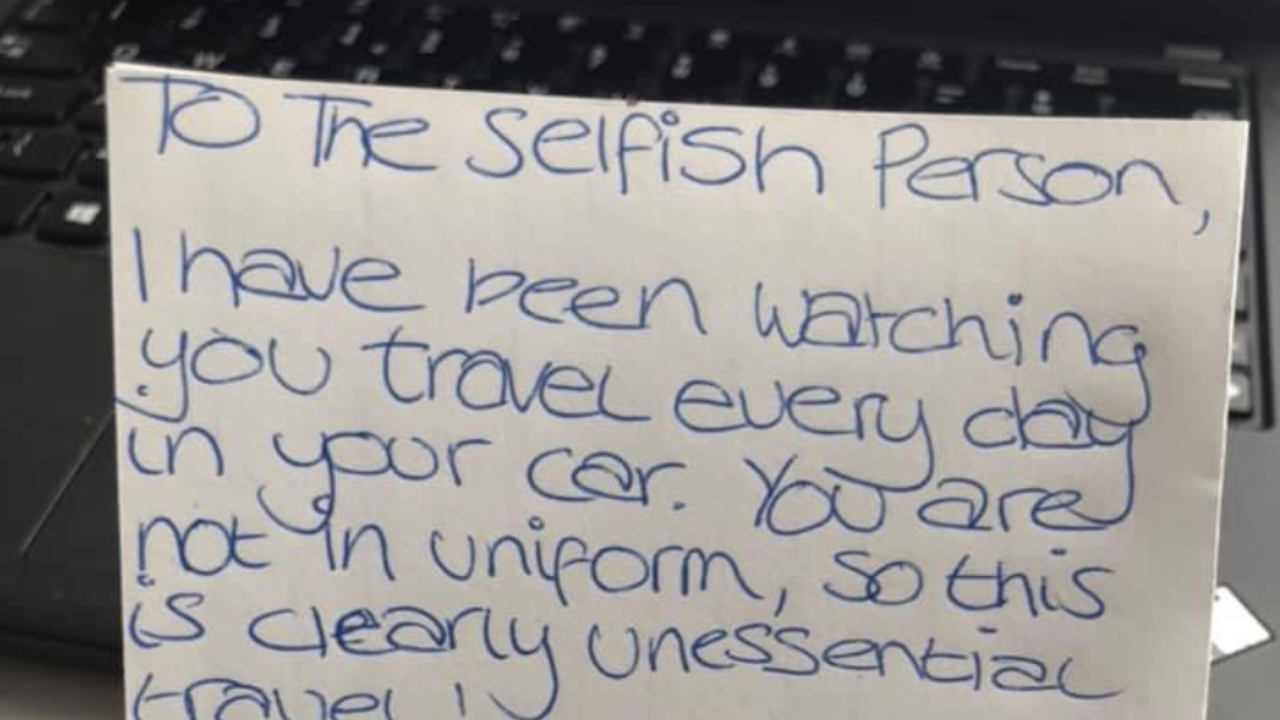 To The Selfish Person,
I have been watching
you travel every day
in your car. You are
not in uniform, so this
is clearly unessential
travel!